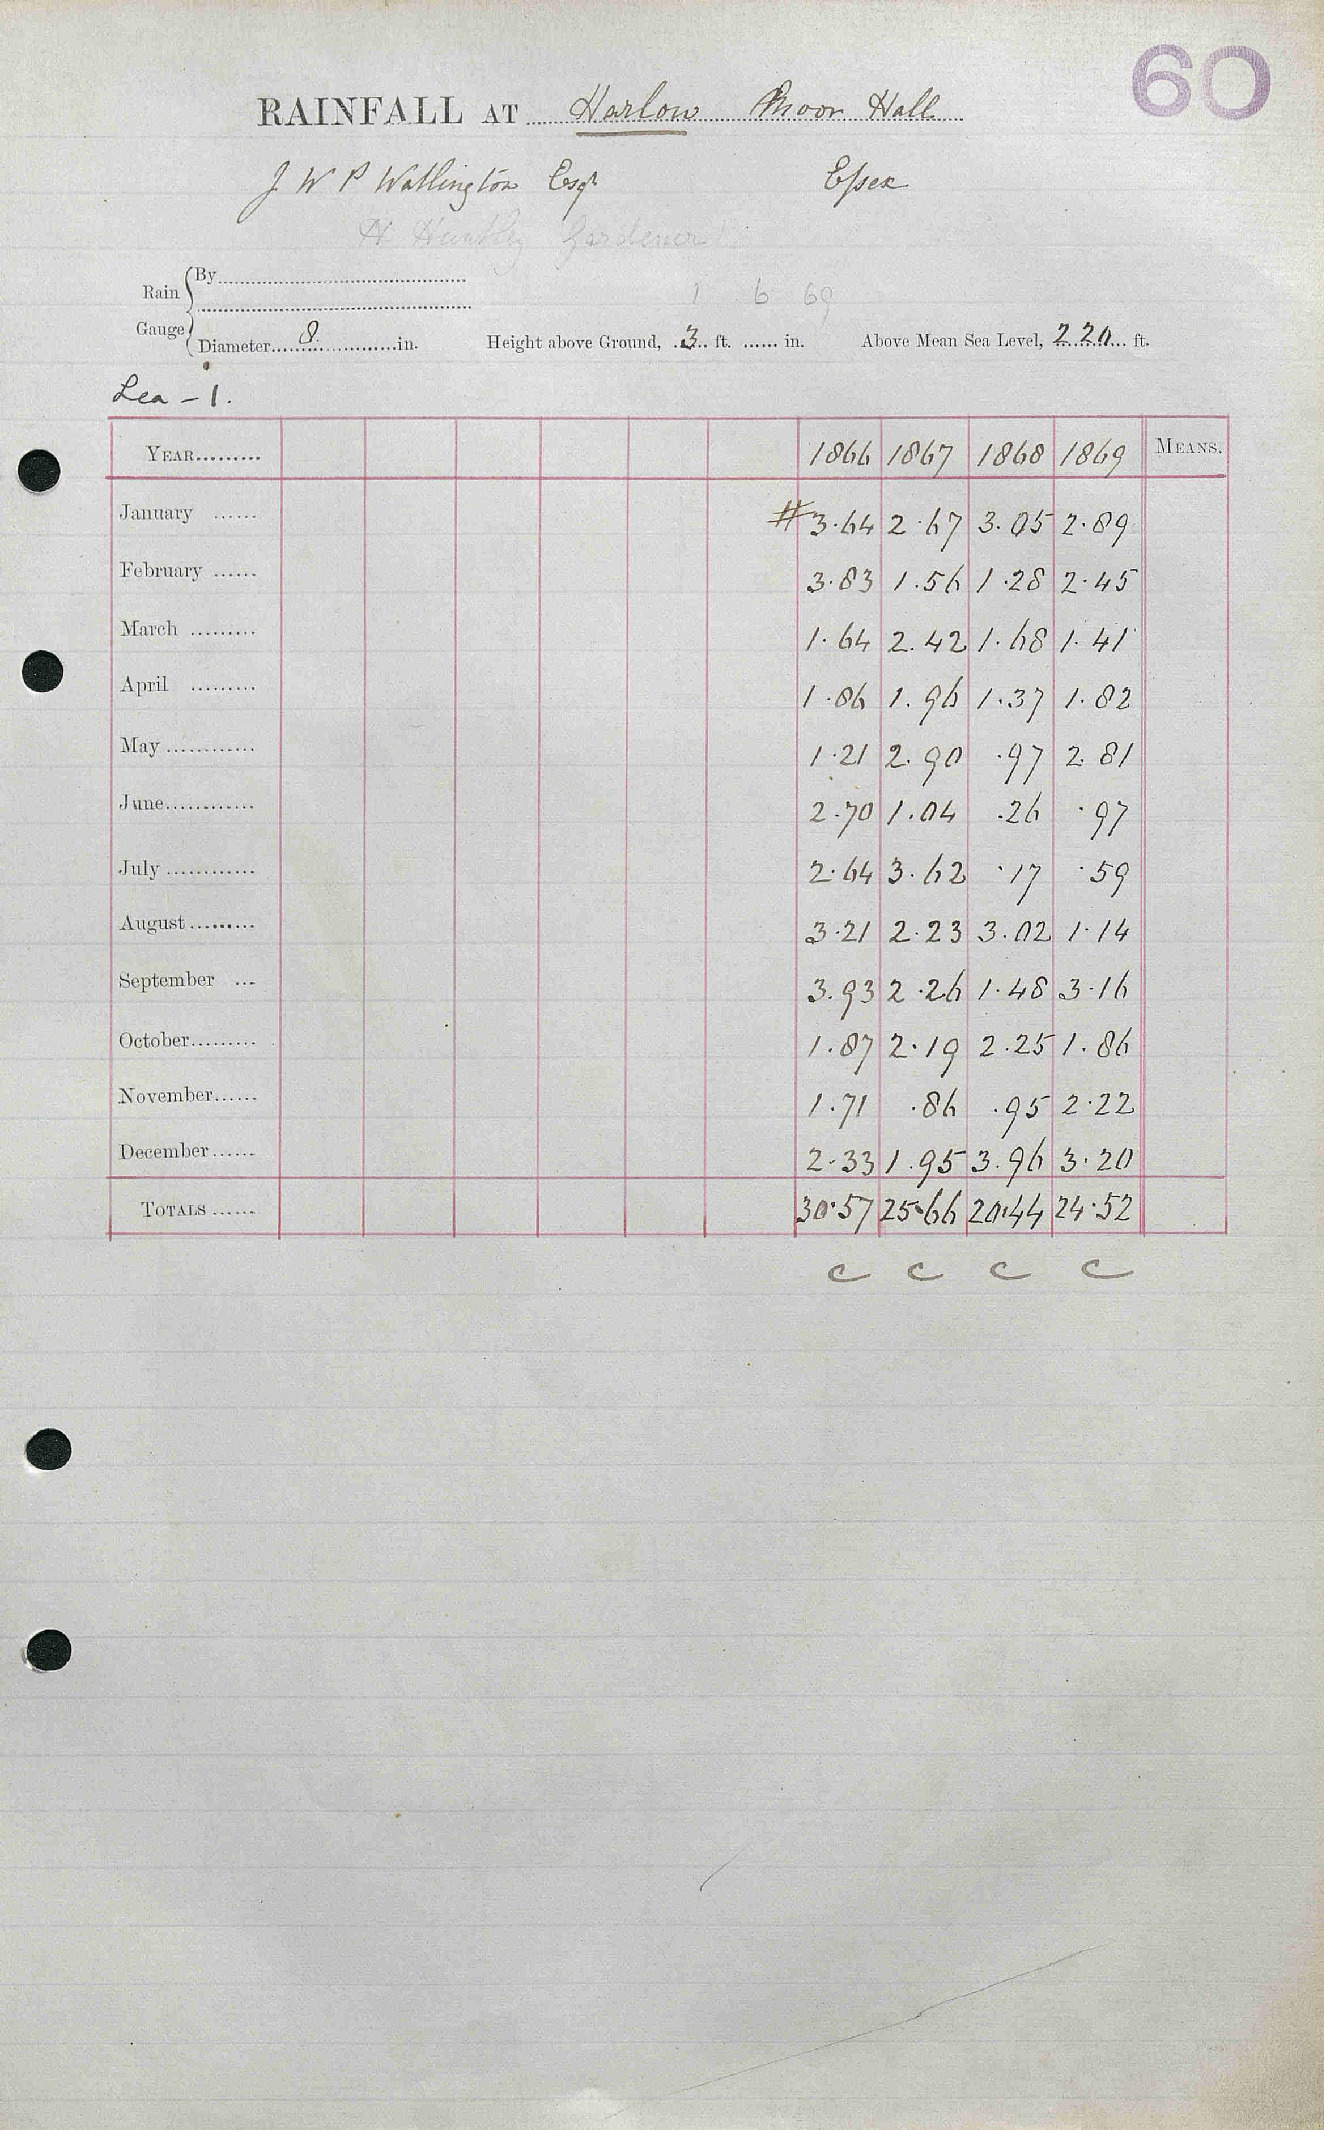 60
RAINFALL AT Harlow Moor Hall
J W P Wallington Esqr Essex
H Huntley Gardener
Rain Gauge { By
1 6 69
Diameter 8 in. Height above Ground, 3 ft. ...... in. Above Mean Sea Level, 220 ft.
Lea - 1.
YEAR......... 1866 1867 1868 1869 MEANS.
January ...... # 3.64 2.67 3.05 2.89
February ...... 3.83 1.56 1.28 2.45
March ......... 1.64 2.42 1.68 1.41
April ......... 1.86 1.96 1.37 1.82
May ............ 1.21 2.90 .97 2.81
June............ 2.70 1.04 .26 .97
July ............ 2.64 3.62 .17 .59
August ......... 3.21 2.23 3.02 1.14
September ... 3.93 2.26 1.48 3.16
October......... 1.87 2.19 2.25 1.86
November...... 1.71 .86 .95 2.22
December...... 2.33 1.95 3.96 3.20
TOTALS ...... 30.57 25.66 20.44 24.52
c c c c